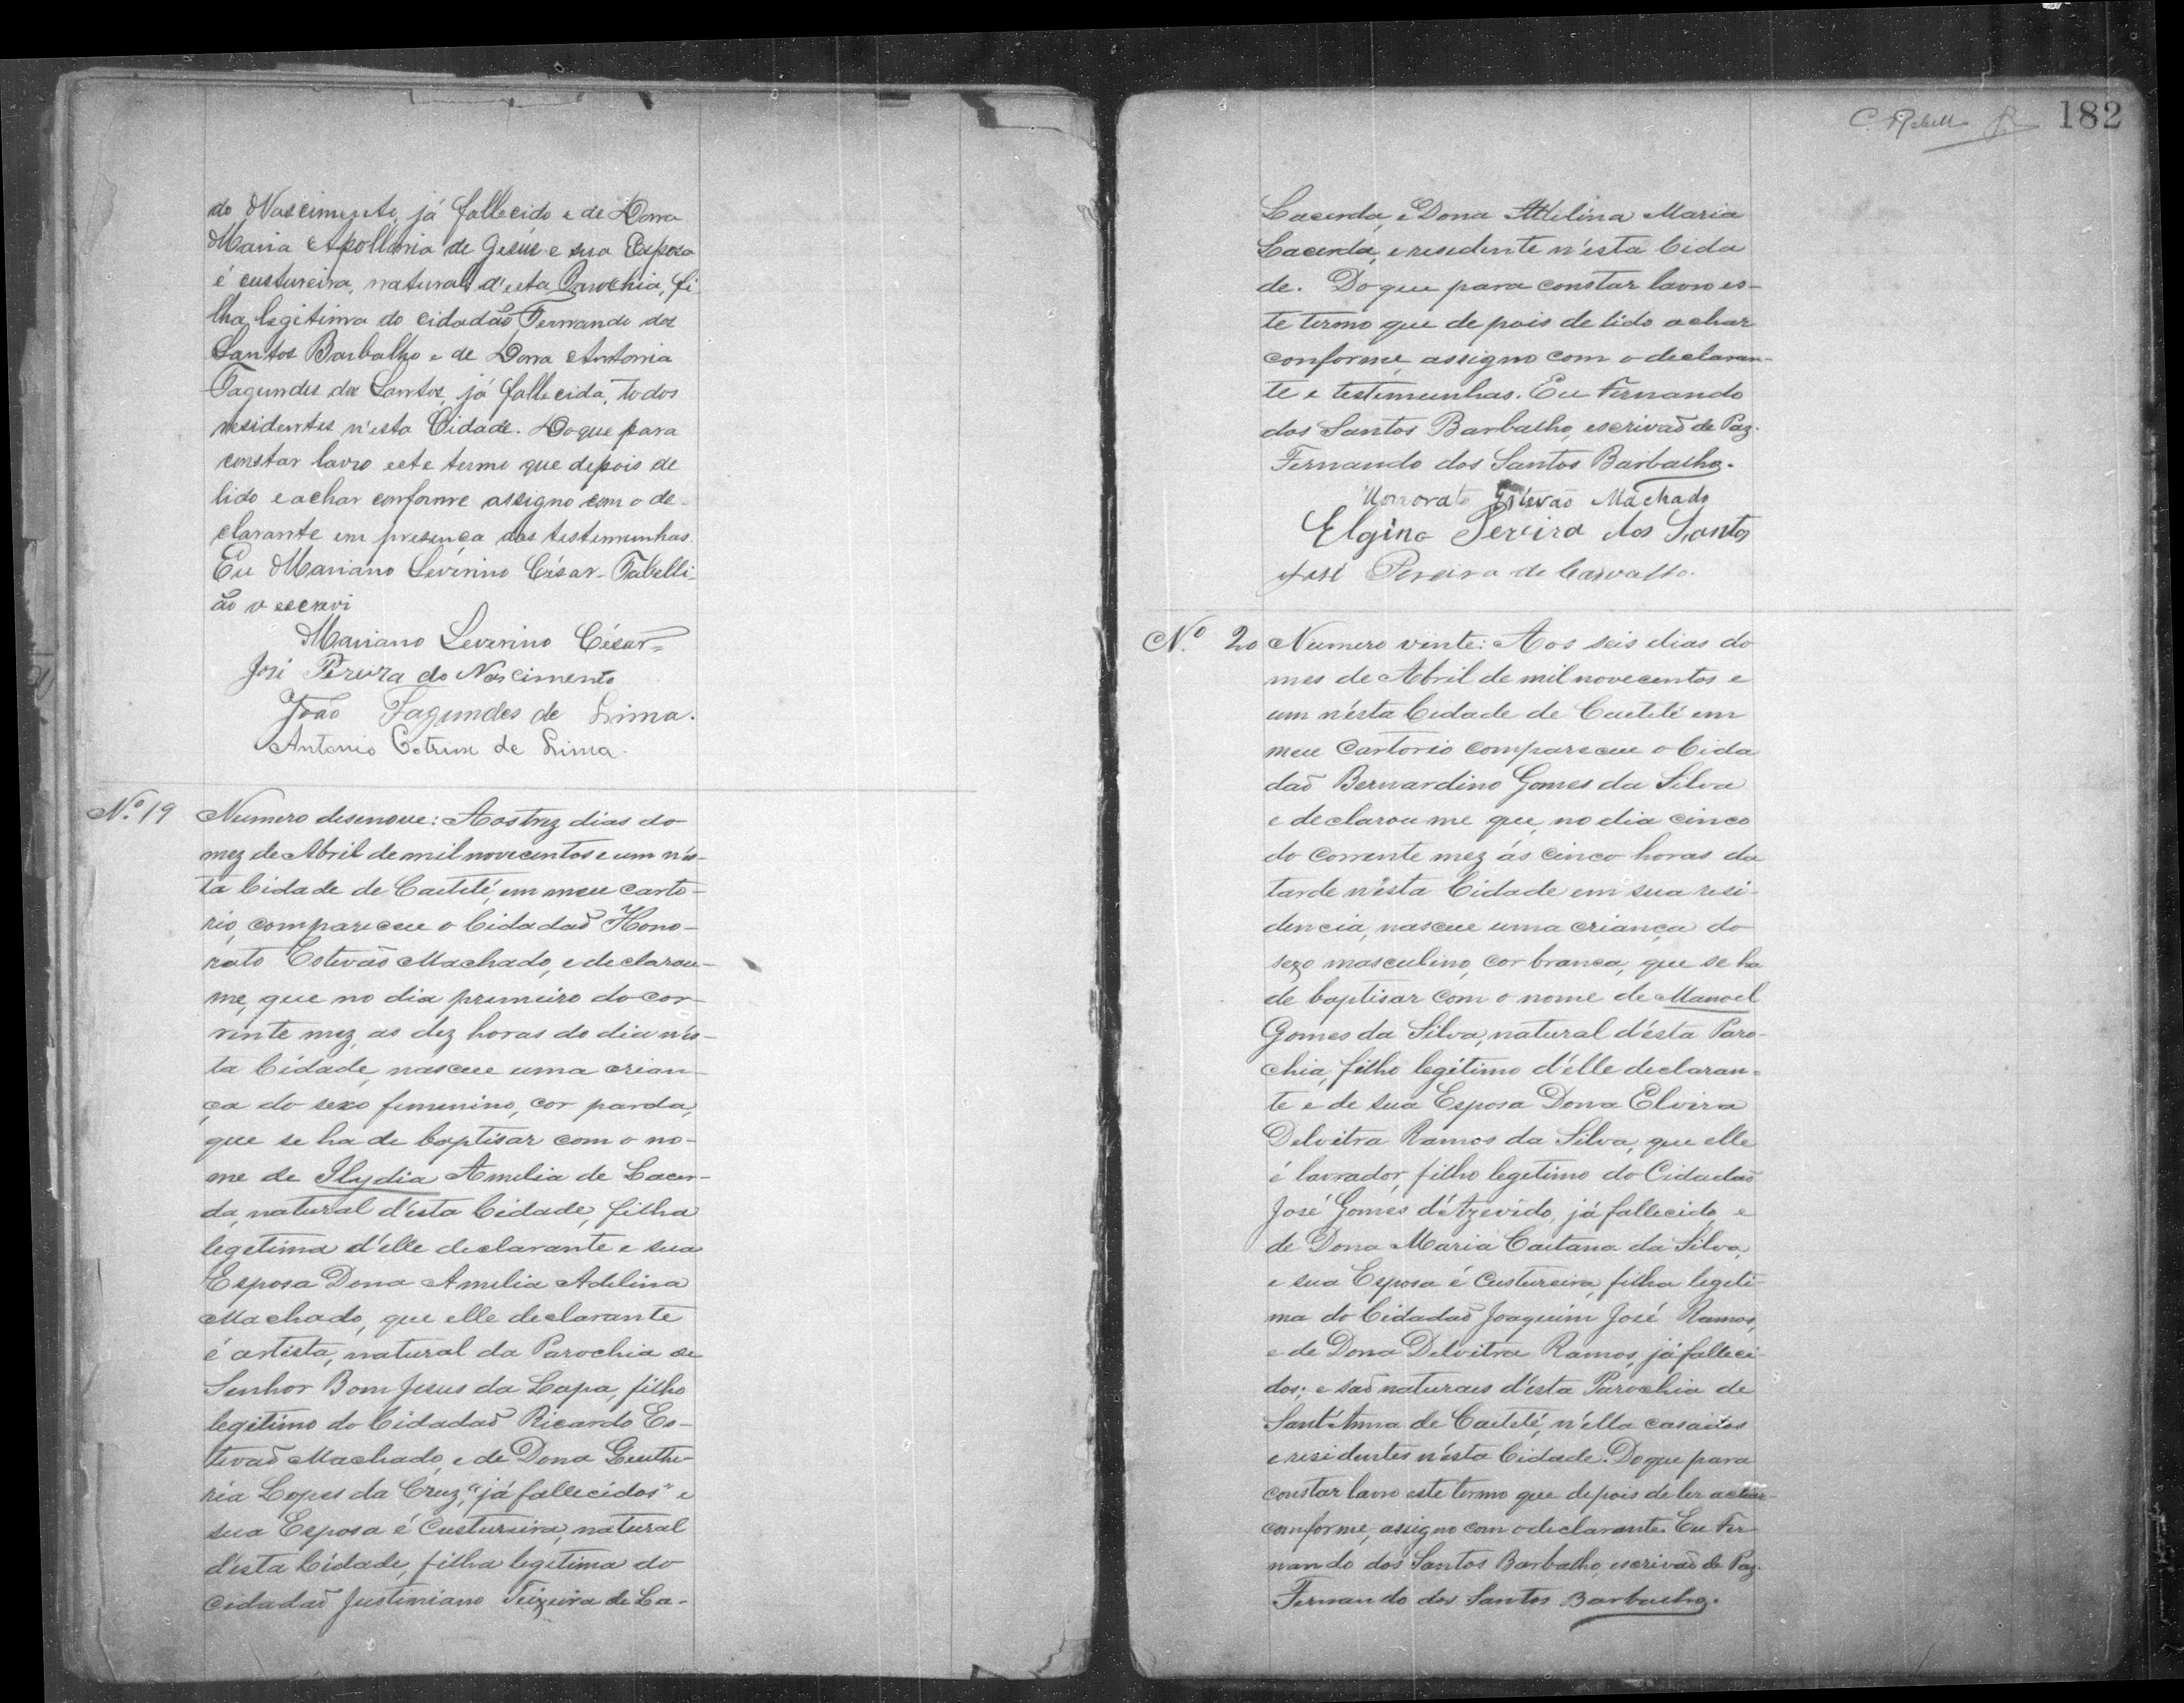 do Nascimento, já fallecido e de Dona
Maria Apollinia de Jesús e sua Espoza
é custureira, natural d'esta Parochia, fi
lha legitima do cidadão Fernando dos
Santos Barbalho e de Dona Antonia
Fagundes dos Santos, já fallecida, todos
residentes n'esta Cidade. Do que para
constar lavro este termo que depois de
lido e achar conforme assigno com o de-
clarante em presença das testemunhas.
Eu Mariano Severino César Tabelli-
ão o escrevi
Mariano Severino César
José Pereira do Nascimento
João Fagundes de Lima.
Antonio Cotrim de Lima.
Nº 19 Numero desenove: Aos trez dias do
mez de Abril de mil novecentos e um n'es-
ta Cidade de Caetité, em meu carto-
rio, compareceu o Cidadaõ Hono-
rato Estevaõ Machado, e declarou-
me, que no dia primeiro do cor-
rente mez, as déz horas do dia n'es-
ta Cidade, nasceu uma crian-
ça do sexo femenino, cor parda,
que se ha de baptisar com o no-
me de Ilydia Amelia de Lacer-
da, natural d'ésta Cidade, filha
legetima d'elle declarante e sua
Esposa Dona Amelia Adelina
Machado, que elle declarante
é artista, natural da Parochia do
Senhor Bom Jesus da Lapa, filho
legétimo do Cidadaõ Ricardo Es-
tevaõ Machado, e de Dona
ria Lopes da Cruz, "já fallecidos" e
sua Esposa é Custureira, natural
d'esta Cidade, filha legetima do
cidadaõ Justiniano Teixeira de La-
182
Lacerda, e Dona Adelina Maria
Lacerda, e residente n'ésta Cida
de. Do que para constar lavro es-
te termo que depois de lido achar
conforme, assigno com o declaran-
te e testemunhas. Eu Fernando
dos Santos Barbalho, escrivaõ de Paz.
Fernando dos Santos Barbalho.
Honorato Estevão Machado
Elgino Pereira dos Santos
José Pereira de Carvalho.
Nº 20 Numero vinte: Aos seis dias do
mes de Abril de mil novecentos e
um n'ésta Cidade de Caetité em
meu Cartorio compareceu o Cida
daõ Bernardino Gomes da Silva
e declarou me que, no dia cinco
do corrente mez ás cinco horas da
tarde n'ésta Cidade em sua resi-
dencia, nasceu uma criança do
sexo masculino, cor branca, que se ha
de baptisar com o nome de Manoel
Gomes da Silva, natural d'ésta Paro-
chia, filho legétimo d'élle declaran-
te e de sua Esposa Dona Elvira
Delvitra Ramos da Silva, que elle
é lavrador, filho legetimo do Cidadaõ
José Gomes d'Azevedo, já fallecido, e
de Dona Maria Caetana da Silva,
e sua Esposa é Custureira, filha legeti-
ma do Cidadaõ Joaquim José Ramos,
e de Dona Delvitra Ramos, já falleci-
dos; e saõ naturaes d'ésta Parochia de
Sant'Anna de Caetité, n'ella casados
e residentes n'ésta Cidade. Do que para
constar lavro este termo que depois de ler achar
comforme, assigno com o declarante. Eu Fer-
nando dos Santos Barbalho, escrivaõ de Paz.
Fernando dos Santos Barbalho.